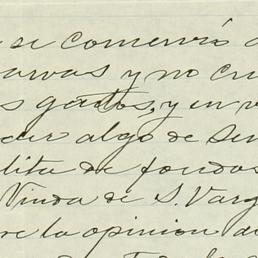 se comenzó a
y no cu
s gastos, y en v
der algo de sen
dita de fondos
Viuda de S. Varg
re la opinion de